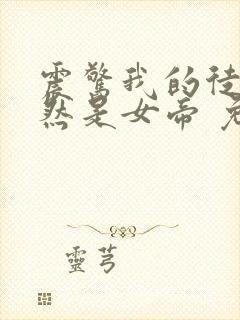 震驚我的徒
然是女帝
靈芎